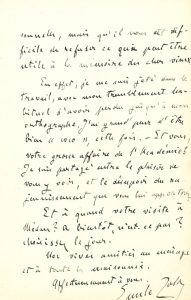 sonnelle, mais qu'il vous est dif-
ficile de refuser ce qui peut être
utile à la mémoire du cher vieux
En effet, je me suis jeté dans le
travail, avec mon tremblement ha-
bituel d'avoir perdu jusqu'à mon
orthographe. J'ai grand peur d'être
bien cette fois. - Et vous,
votre grosse affaire de l'Académie?
Je suis partagé entre le plaisir de
vous y voir, et le désespoir du
que vous
Et à quand votre visite à
Médan? A bientôt, n'est-ce pas?
choisissez le jour.
Nos vives amitiés au ménage
et à toute la maisonnée.
Affectueusement à vous.
Emile Zola